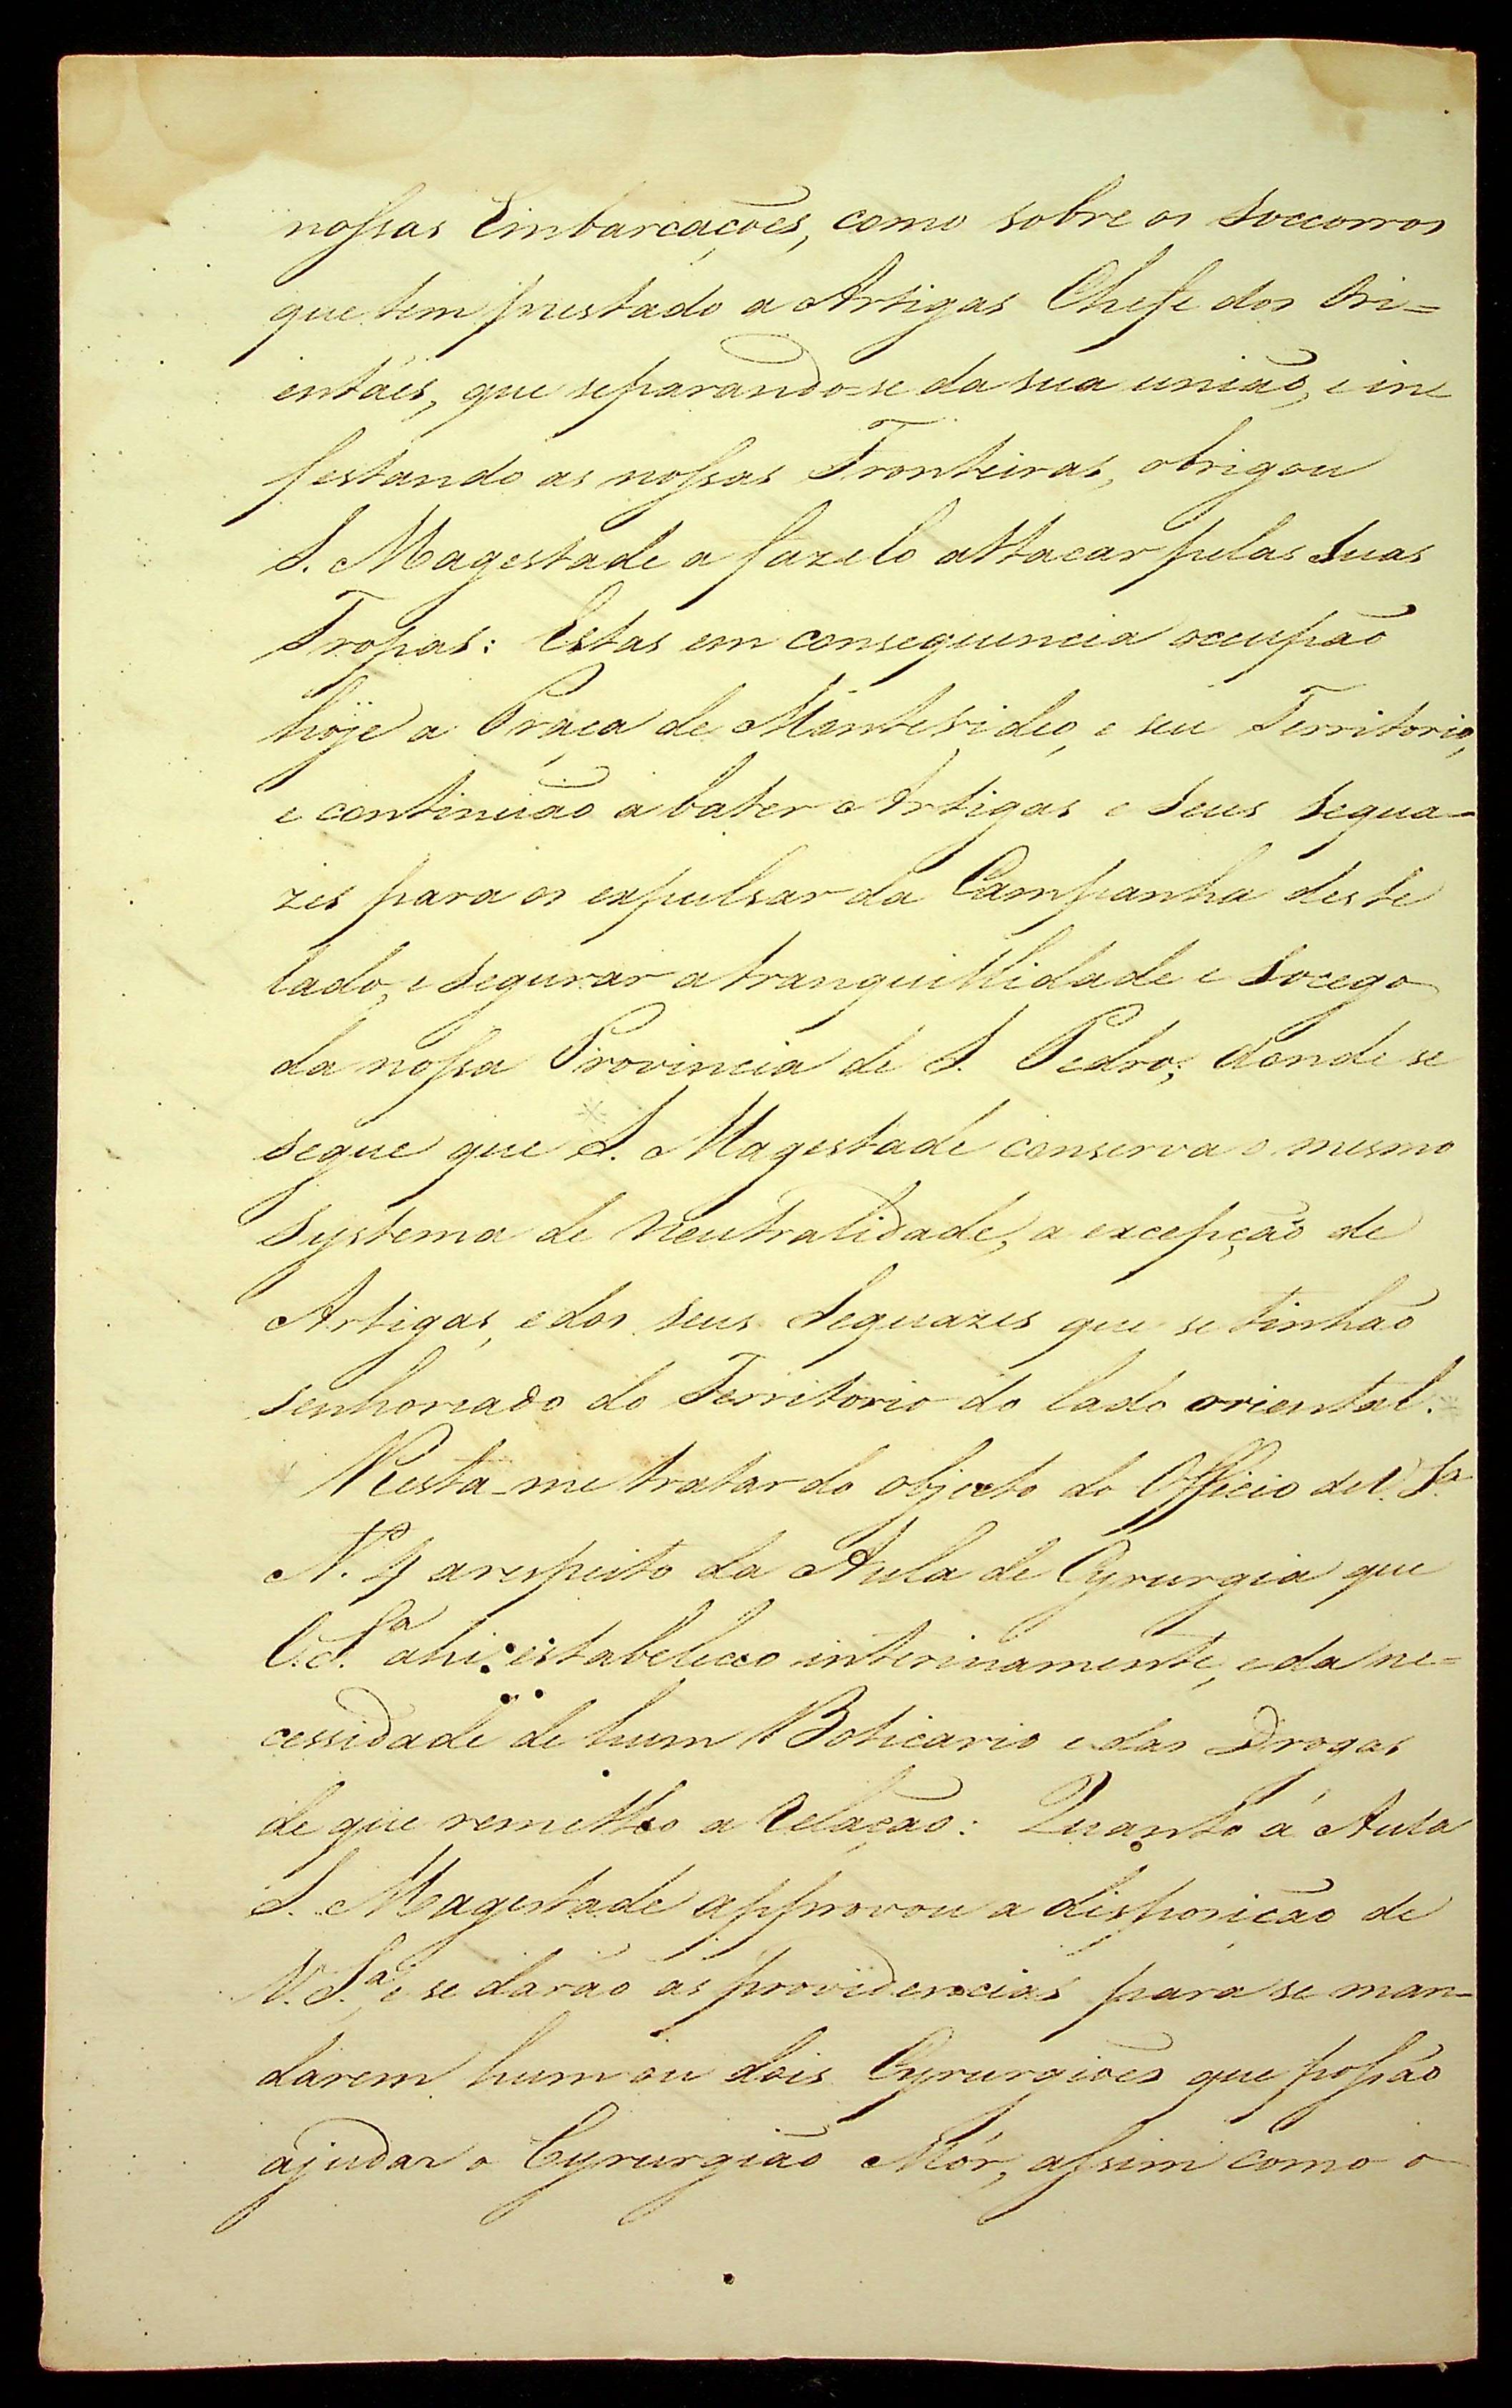 nossas Embarcações, como sobre os Soccorros
que tem prestado a Artigas Chefe dos Ori=
entáes, que separando-se da sua união, e in
festando as nossas Fronteiras, obrigou
S. Magestade a fazelo attacar pelas Suas
Tropas: Estas em consequencia occupão
hoje a Praça de Montevideo, e seu Territorio,
e continuão a bater Artigas e Seus Sequa-
zes para os expulsar da Campanha deste
lado, e segurar a tranquillidade e Socego
da nossa Provincia de S. Pedro; donde se
segue que S. Magestade conserva o mesmo
Systema de Neutralidade, a excepção de
Artigas, e dos Seus Sequazes que se tinhão
senhoreado do Territorio do lado oriental.
Resta-me tratar do objecto do Officio de V. Sª
Nº 4 a respeito da Aula de Cyrurgia que
V. Sª ahi estabeleceo interinamente, e da ne=
cessidade de hum Boticario e das Drogas
de que remetteo a Relação: Quanto á Aula
S. Magestade approvou a disposição de
V. Sª, e se darão as providencias para se man-
darem hum ou dois Cyrurgiões que possão
ajudar o Cyrurgião Mór, assim como o